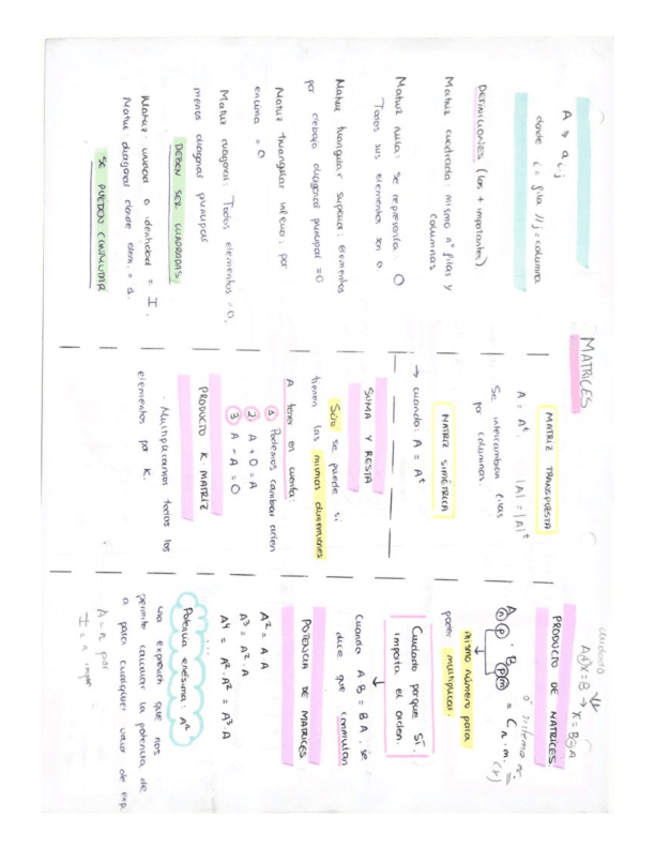 MATRICES
A → a i,j
donde i = fila // j = columna
DEFINICIONES (las + importantes)
Matriz cuadrada: mismo nº filas y
columnas
Matriz nula: se representa. O
Todos sus elementos son 0.
Matriz triangular superior: elementos
por debajo diagonal principal = 0
Matriz triangular inferior: por
encima = 0
Matriz diagonal: Todos elementos = 0.
menos diagonal principal
DEBEN SER CUADRADAS.
Matriz unidad o identidad = I.
Matriz diagonal donde elem. = 1.
SE PUEDEN CONMUTAR
MATRIZ TRANSPUESTA
A = Aᵗ. |A| = |A|ᵗ
Se intercambian filas
por columnas.
MATRIZ SIMÉTRICA
→ cuando: A = Aᵗ
SUMA Y RESTA
Sólo se puede si
tienen las mismas dimensiones
A tener en cuenta:
1 Podemos cambiar orden
2 A + O = A
3 A - A = O
PRODUCTO K. MATRIZ
- Multiplicamos todos los
elementos por K.
cuidado
A·X = B → X = B
PRODUCTO DE MATRICES
o sistema ec.
A · B = C n·m.
n p p m
mismo número para
poder multiplicar.
Cuidado porque SÍ
importa el orden.
Cuando A B = B A, se
dice que conmutan
POTENCIA DE MATRICES
A² = A A
A³ = A² · A
A⁴ = A² · A² = A³ · A
...
Potencia enésima: Aⁿ
una expresión que nos
permite calcular la potencia de
a para cualquier valor de exp.
A = n par
I = n impar